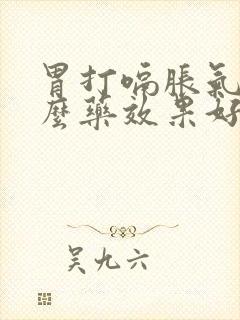 胃打嗝脹氣
麼藥效果好
吴九六